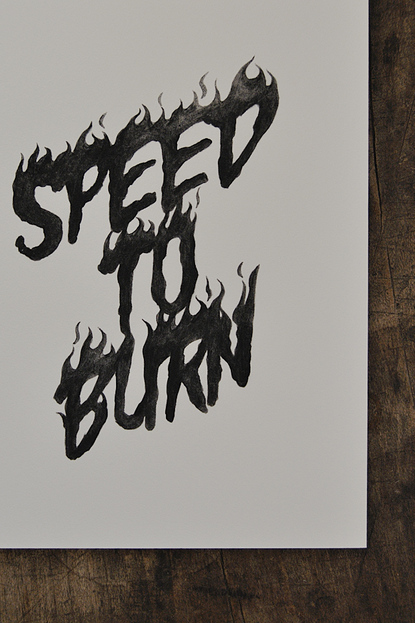 SPEED
TO
BURN